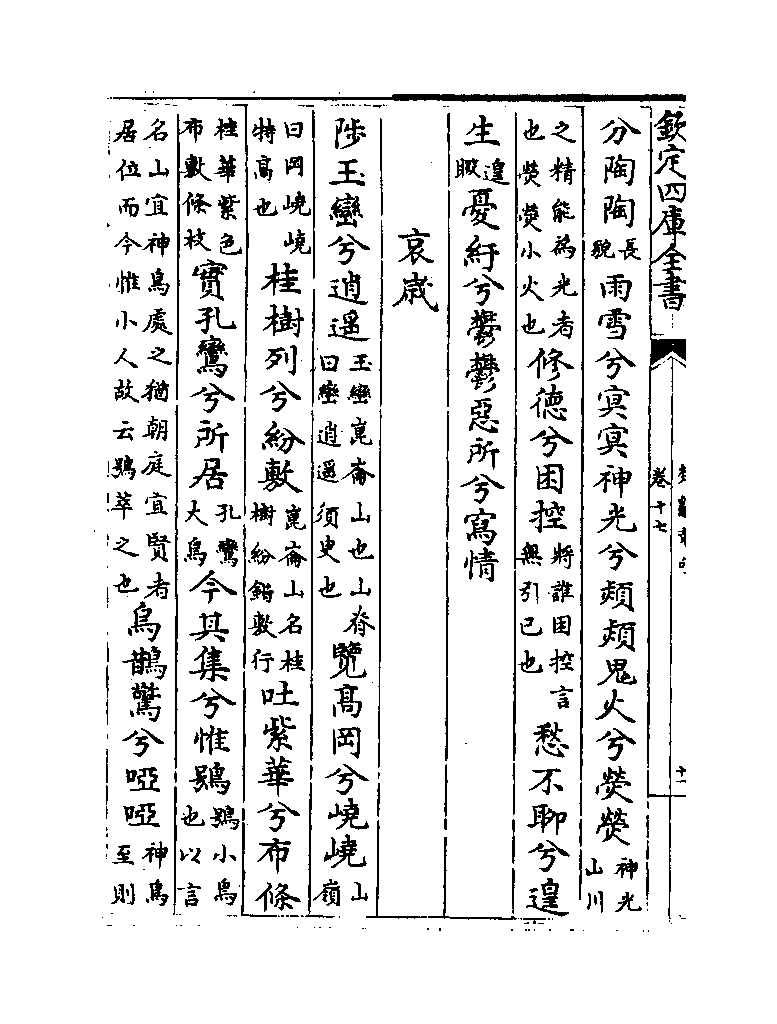 欽定四庫全書
卷十七
兮陶陶長貌雨雪兮冥冥神光兮熲熲鬼火兮熒熒神光山川
之精能為光者也熒熒小火也修徳兮困控將誰困控言無引己也愁不聊兮遑
生遑暇憂紆兮鬱鬱惡所兮寫情
哀歳
陟玉巒兮逍遥玉巒崑崙山也山脊曰巒逍遥須臾也覽髙岡兮嶢嶢山嶺
曰岡嶢嶢特髙也桂樹列兮紛敷崑崙山名桂樹紛錯敷行吐紫華兮布條
桂華紫色布敷條枝實孔鸞兮所居孔鸞大鳥今其集兮惟鴞鴞小鳥也以言
名山宜神鳥處之猶朝庭宜賢者居位而今惟小人故云鴞萃之也烏鵲驚兮啞啞神鳥至則